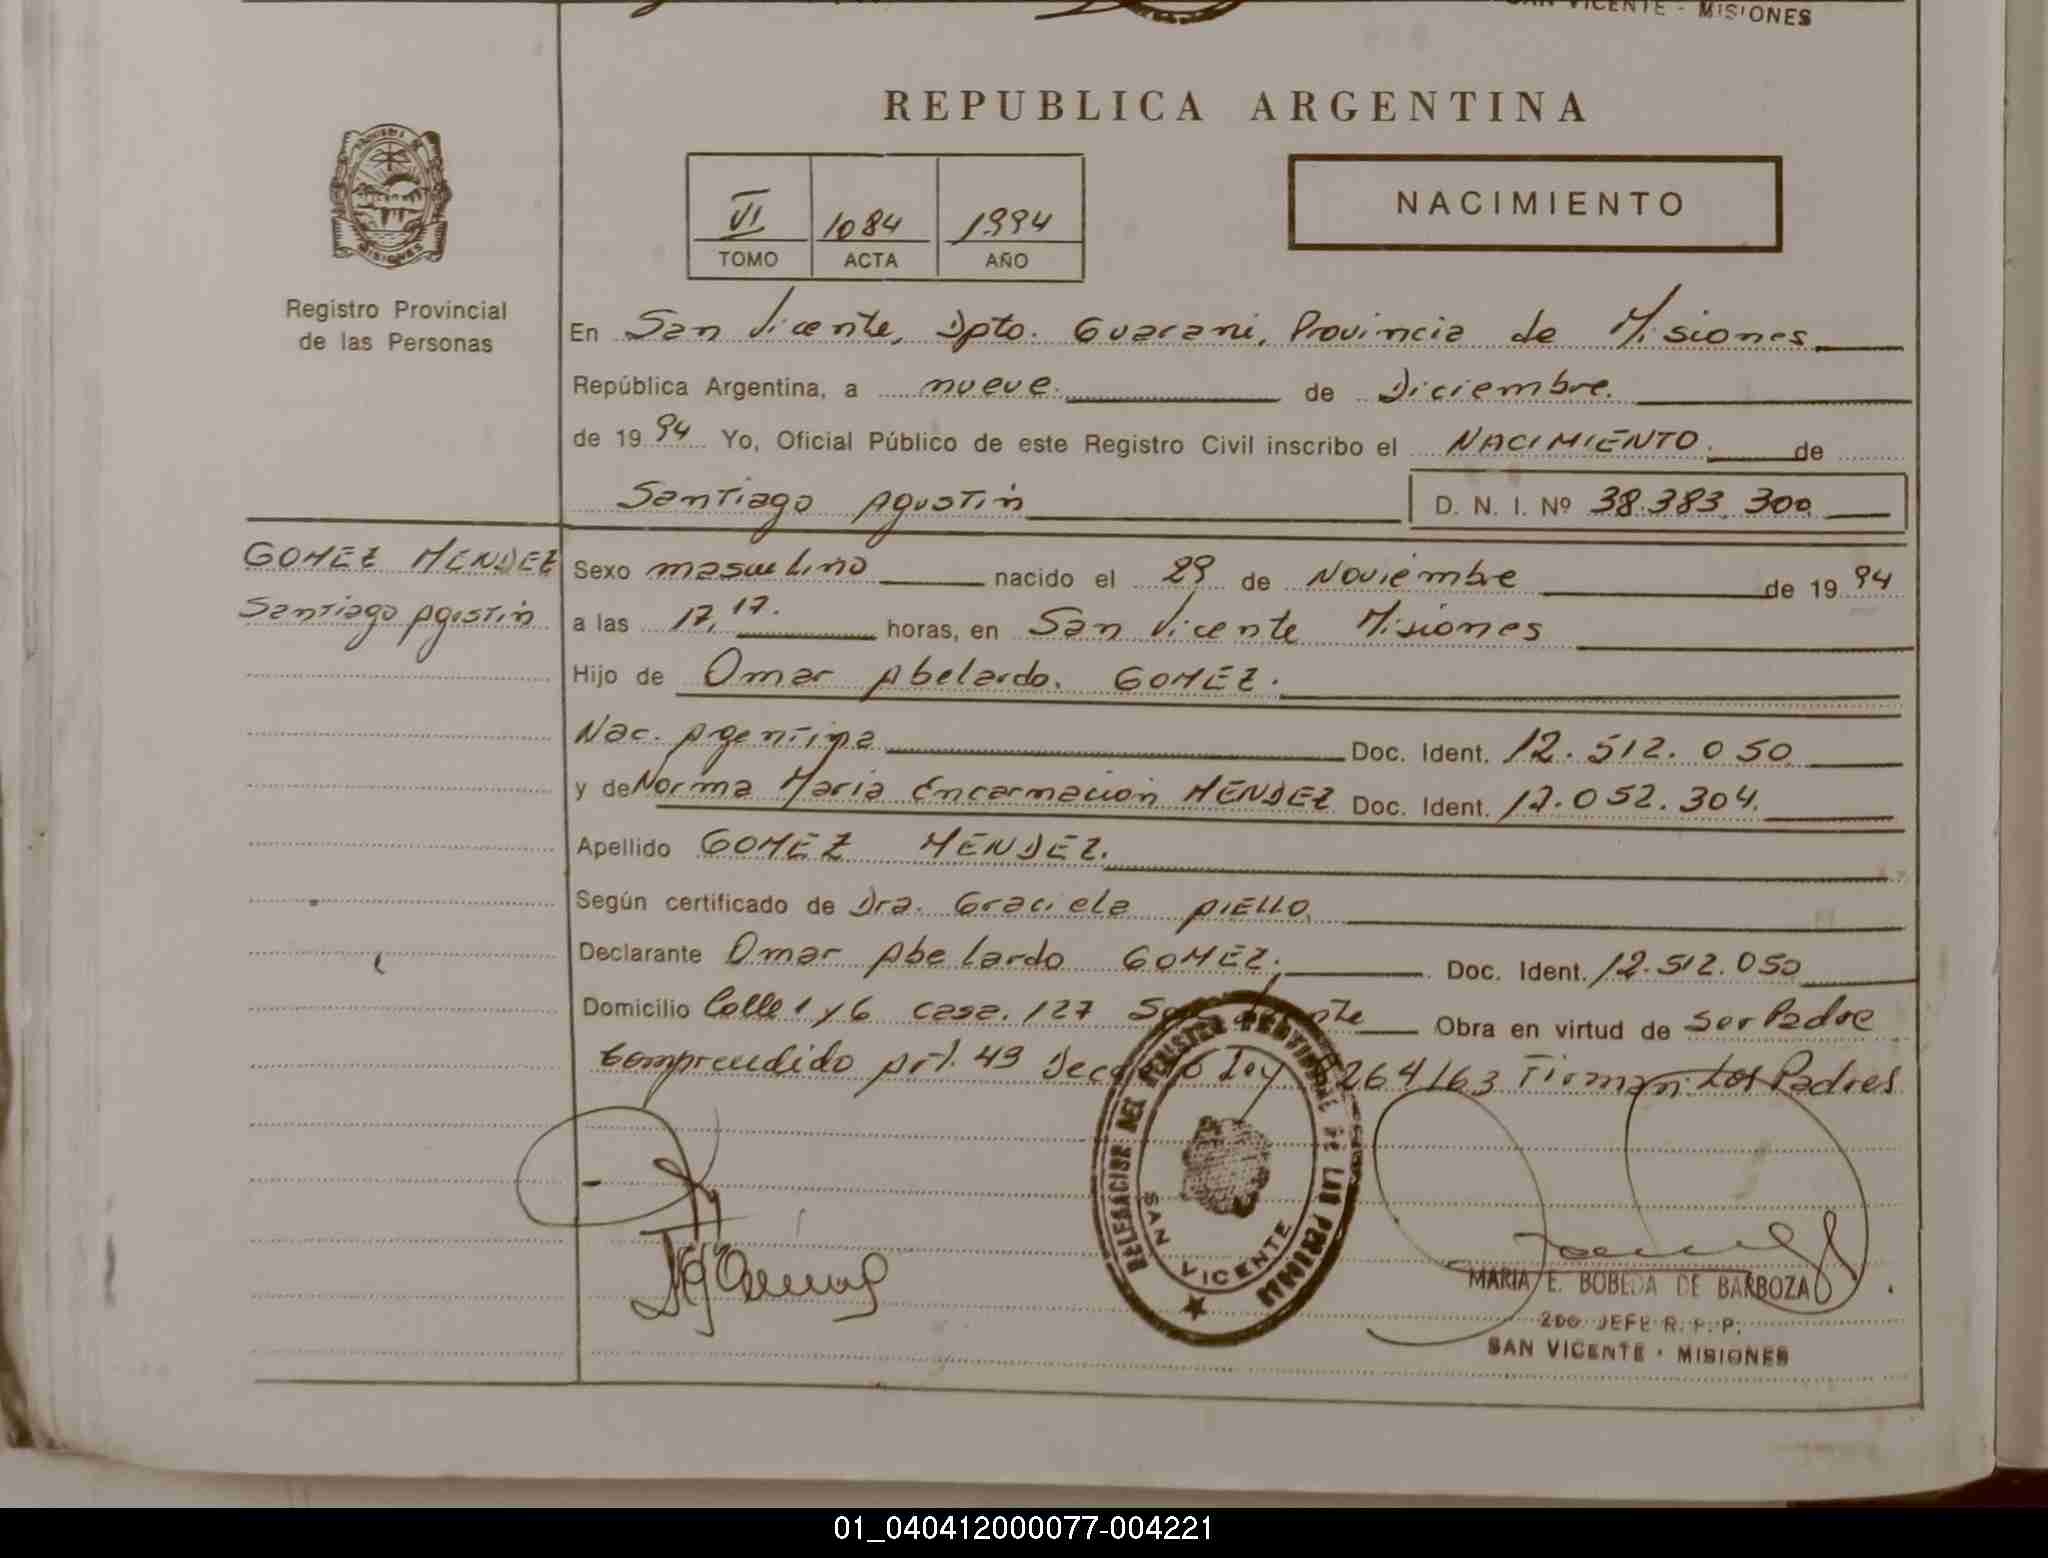 SAN VICENTE - MISIONES
REPUBLICA ARGENTINA
VI 1084 1994
TOMO ACTA AÑO
NACIMIENTO
MISIONES
Registro Provincial
de las Personas
En San Vicente, Dpto. Guarani, Provincia de Misiones
República Argentina, a nueve. de Diciembre.
de 19 94 Yo, Oficial Público de este Registro Civil inscribo el NACIMIENTO. de
Santiago Agustin D. N. I. Nº 38.383.300
GOMEZ MENDEZ
Santiago Agustin
Sexo masculino nacido el 29 de Noviembre de 19 94
a las 17,17. horas, en San Vicente Misiones
Hijo de Omar Abelardo. GOMEZ.
Nac. Argentina Doc. Ident. 12.512.050
y de Norma Maria Encarnacion MENDEZ Doc. Ident. 12.052.304.
Apellido GOMEZ MENDEZ.
Según certificado de Dra. Graciela AIELLO
Declarante Omar Abelardo GOMEZ. Doc. Ident. 12.512.050
Domicilio Calle 1 y 6 casa. 127 San Vicente Obra en virtud de Ser Padre
Comprendido Art. 49 Decreto Ley 8264/63 Firman: Los Padres
DELEGACION DEL REGISTRO PROVINCIAL DE LAS PERSONAS
SAN VICENTE
MARIA E. BOBEDA DE BARBOZA
2DO. JEFE R. P. P.
SAN VICENTE - MISIONES
01_040412000077-004221